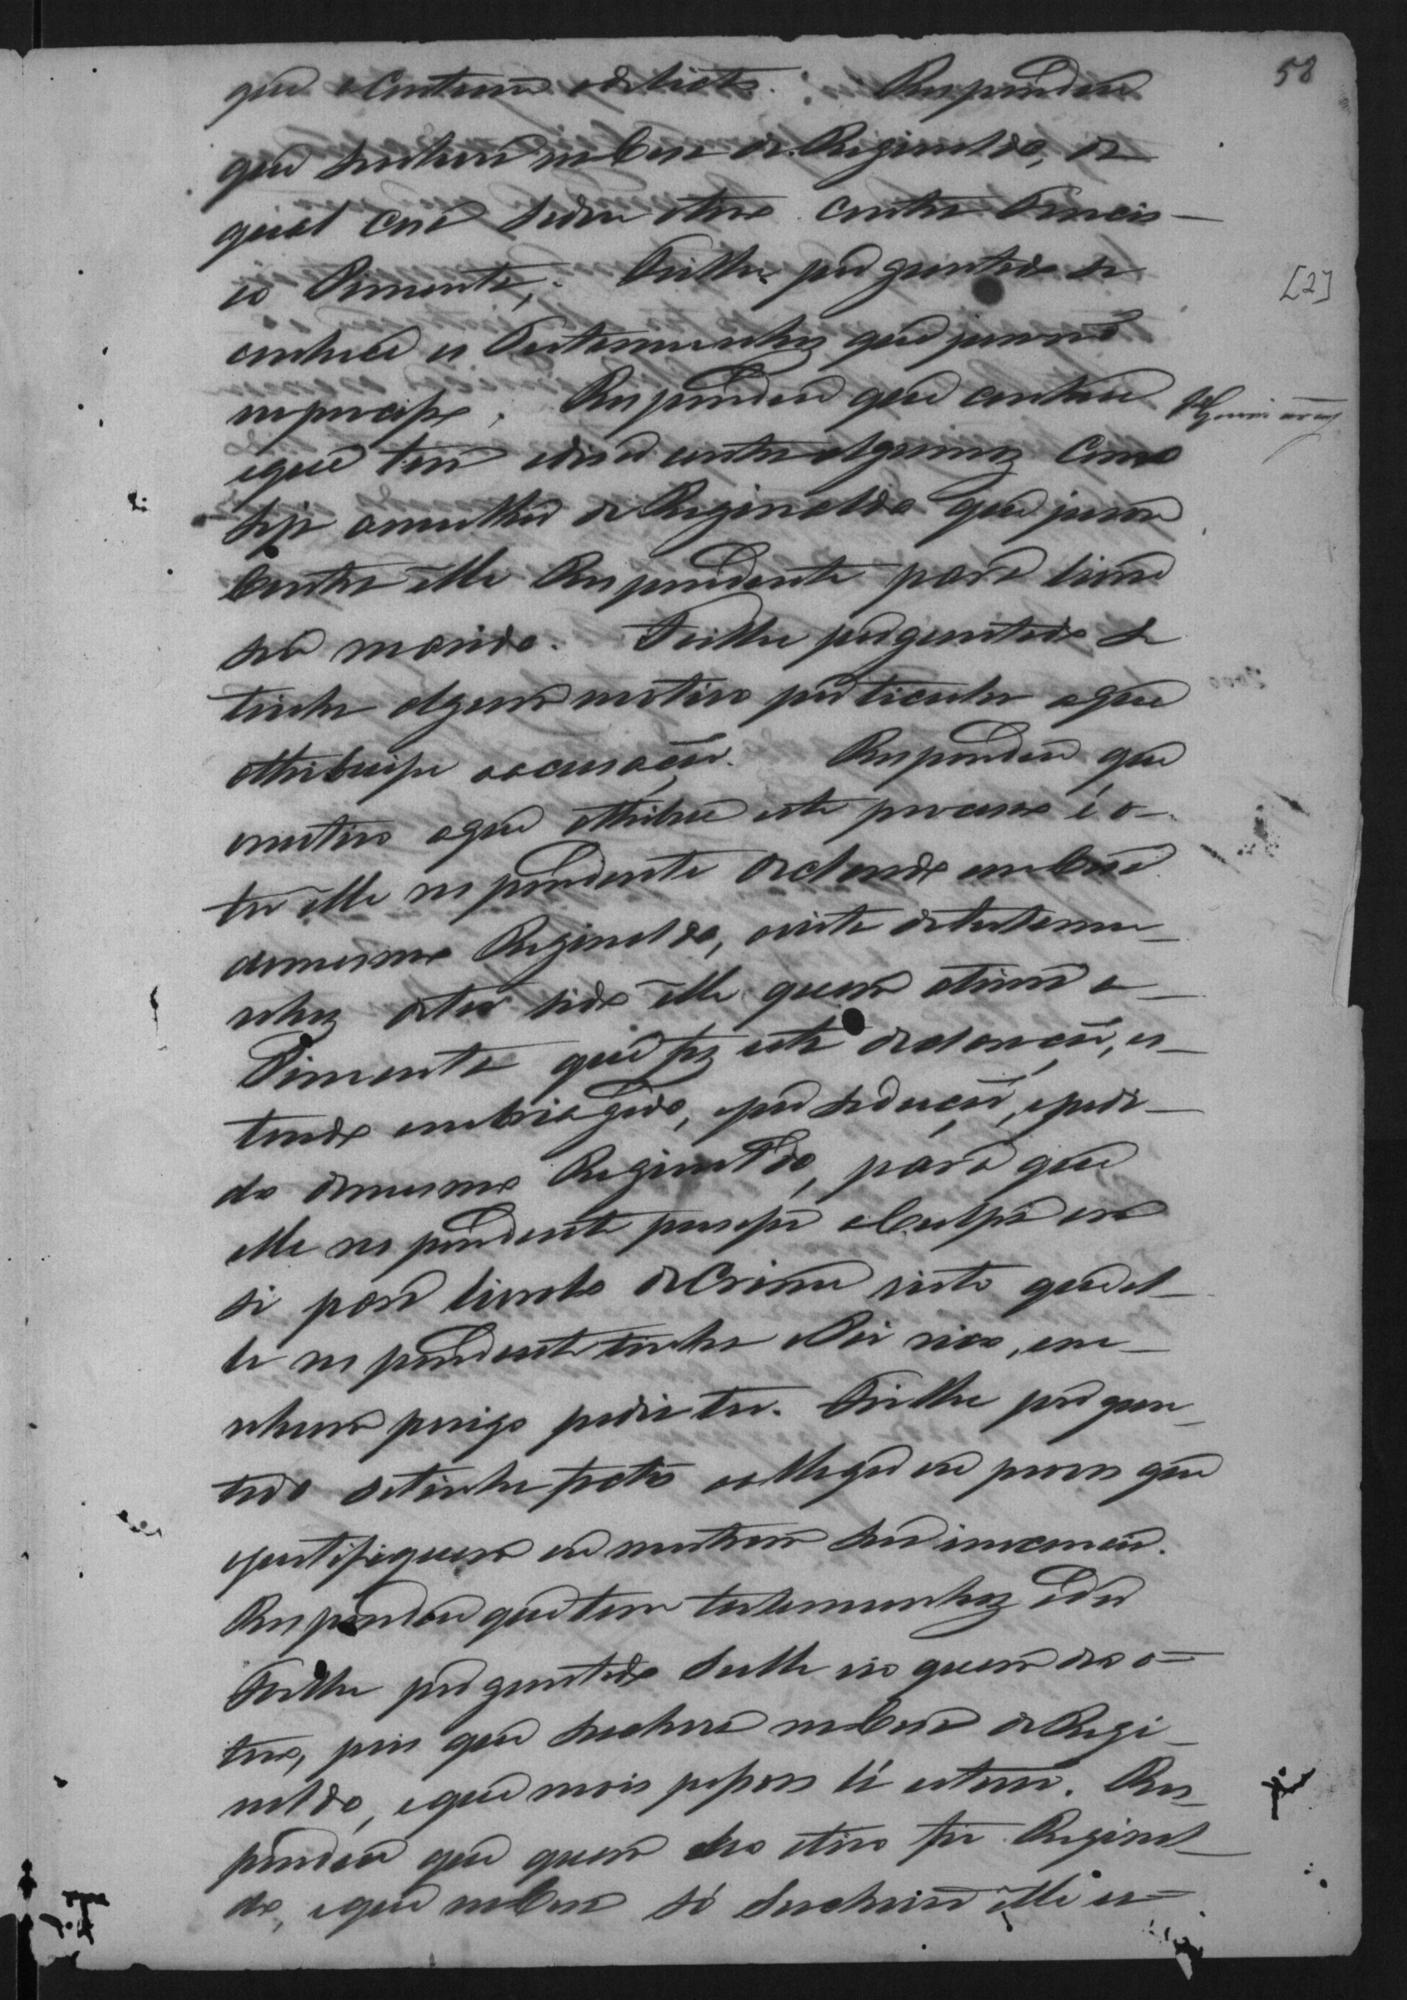 58
que aconteceu o delicto. Respondeu
que se achava na Casa de Reginaldo, da
qual casa sahiu o tiro contra Francis-
co Pimenta. Foi lhe perguntado se
[2]
conhece as Testemunhas que jurarão
no processo. Respondeu que conhece
e que tem que dizer contra algumas como
seja a mulher de Reginaldo que jurou
contra elle Respondente para livrar
seu marido. Foi lhe perguntado se
tinha algum motivo particular a que
attribuisse a accusação. Respondeu que
o motivo a que attribue este processo é o
ter elle respondente declarado em casa
do mesmo Reginaldo, a vista de testemu-
nhas de ter sido elle quem atirou em
Pimenta que fez esta declaração, es-
tando embriagado, e por sedução, e pedi-
do do mesmo Reginaldo, para que
elle respondente puzesse a Culpa em
si para livral-o do Crime visto que el-
le respondente tinha Pai rico, e ne-
nhum perigo podia ter. Foi lhe pergun-
tado se tinha factos a allegar ou provas que
o justifiquem ou mostrem sua innocencia.
Respondeu que tem testemunhas
Foi lhe perguntado se elle vio quem deo o
tiro, pois que se achava na Casa de Regi-
naldo, e que mais pessoas lá estavão. Res-
pondeu que quem deo o tiro foi Reginal-
do, e que na Casa só se achavão elle